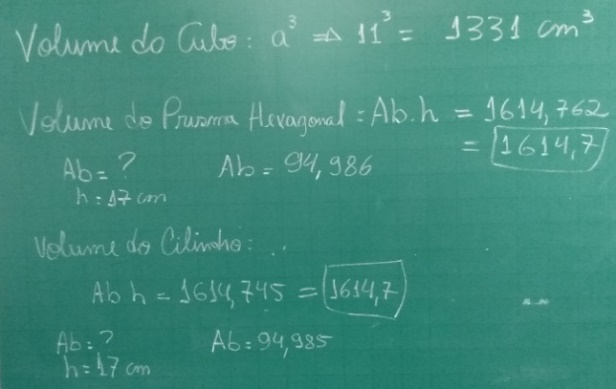 Volume do Cubo: a³ ⇒ 11³ = 1331 cm³
Volume do Prisma Hexagonal: Ab.h = 1614,762
= 1614,7
Ab = ? Ab = 94,986
h = 17 cm
Volume do Cilindro: ..
Ab h = 1614,745 = 1614,7
Ab: ? Ab = 94,985
h = 17 cm